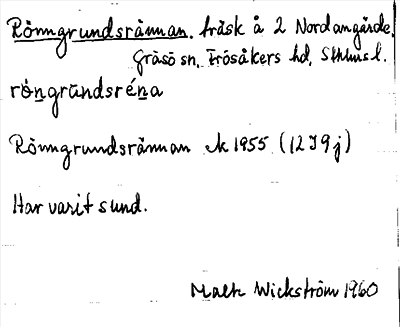 Rönngrundsrännan. träsk å 2 Nordangärde,
Gräsö sn, Frösåkers hd, Sthlms l.
rö́n̲grùndsrén̲a
Rönngrundsrännan ek 1955 (12I9j)
Har varit sund.
Wickström 1960